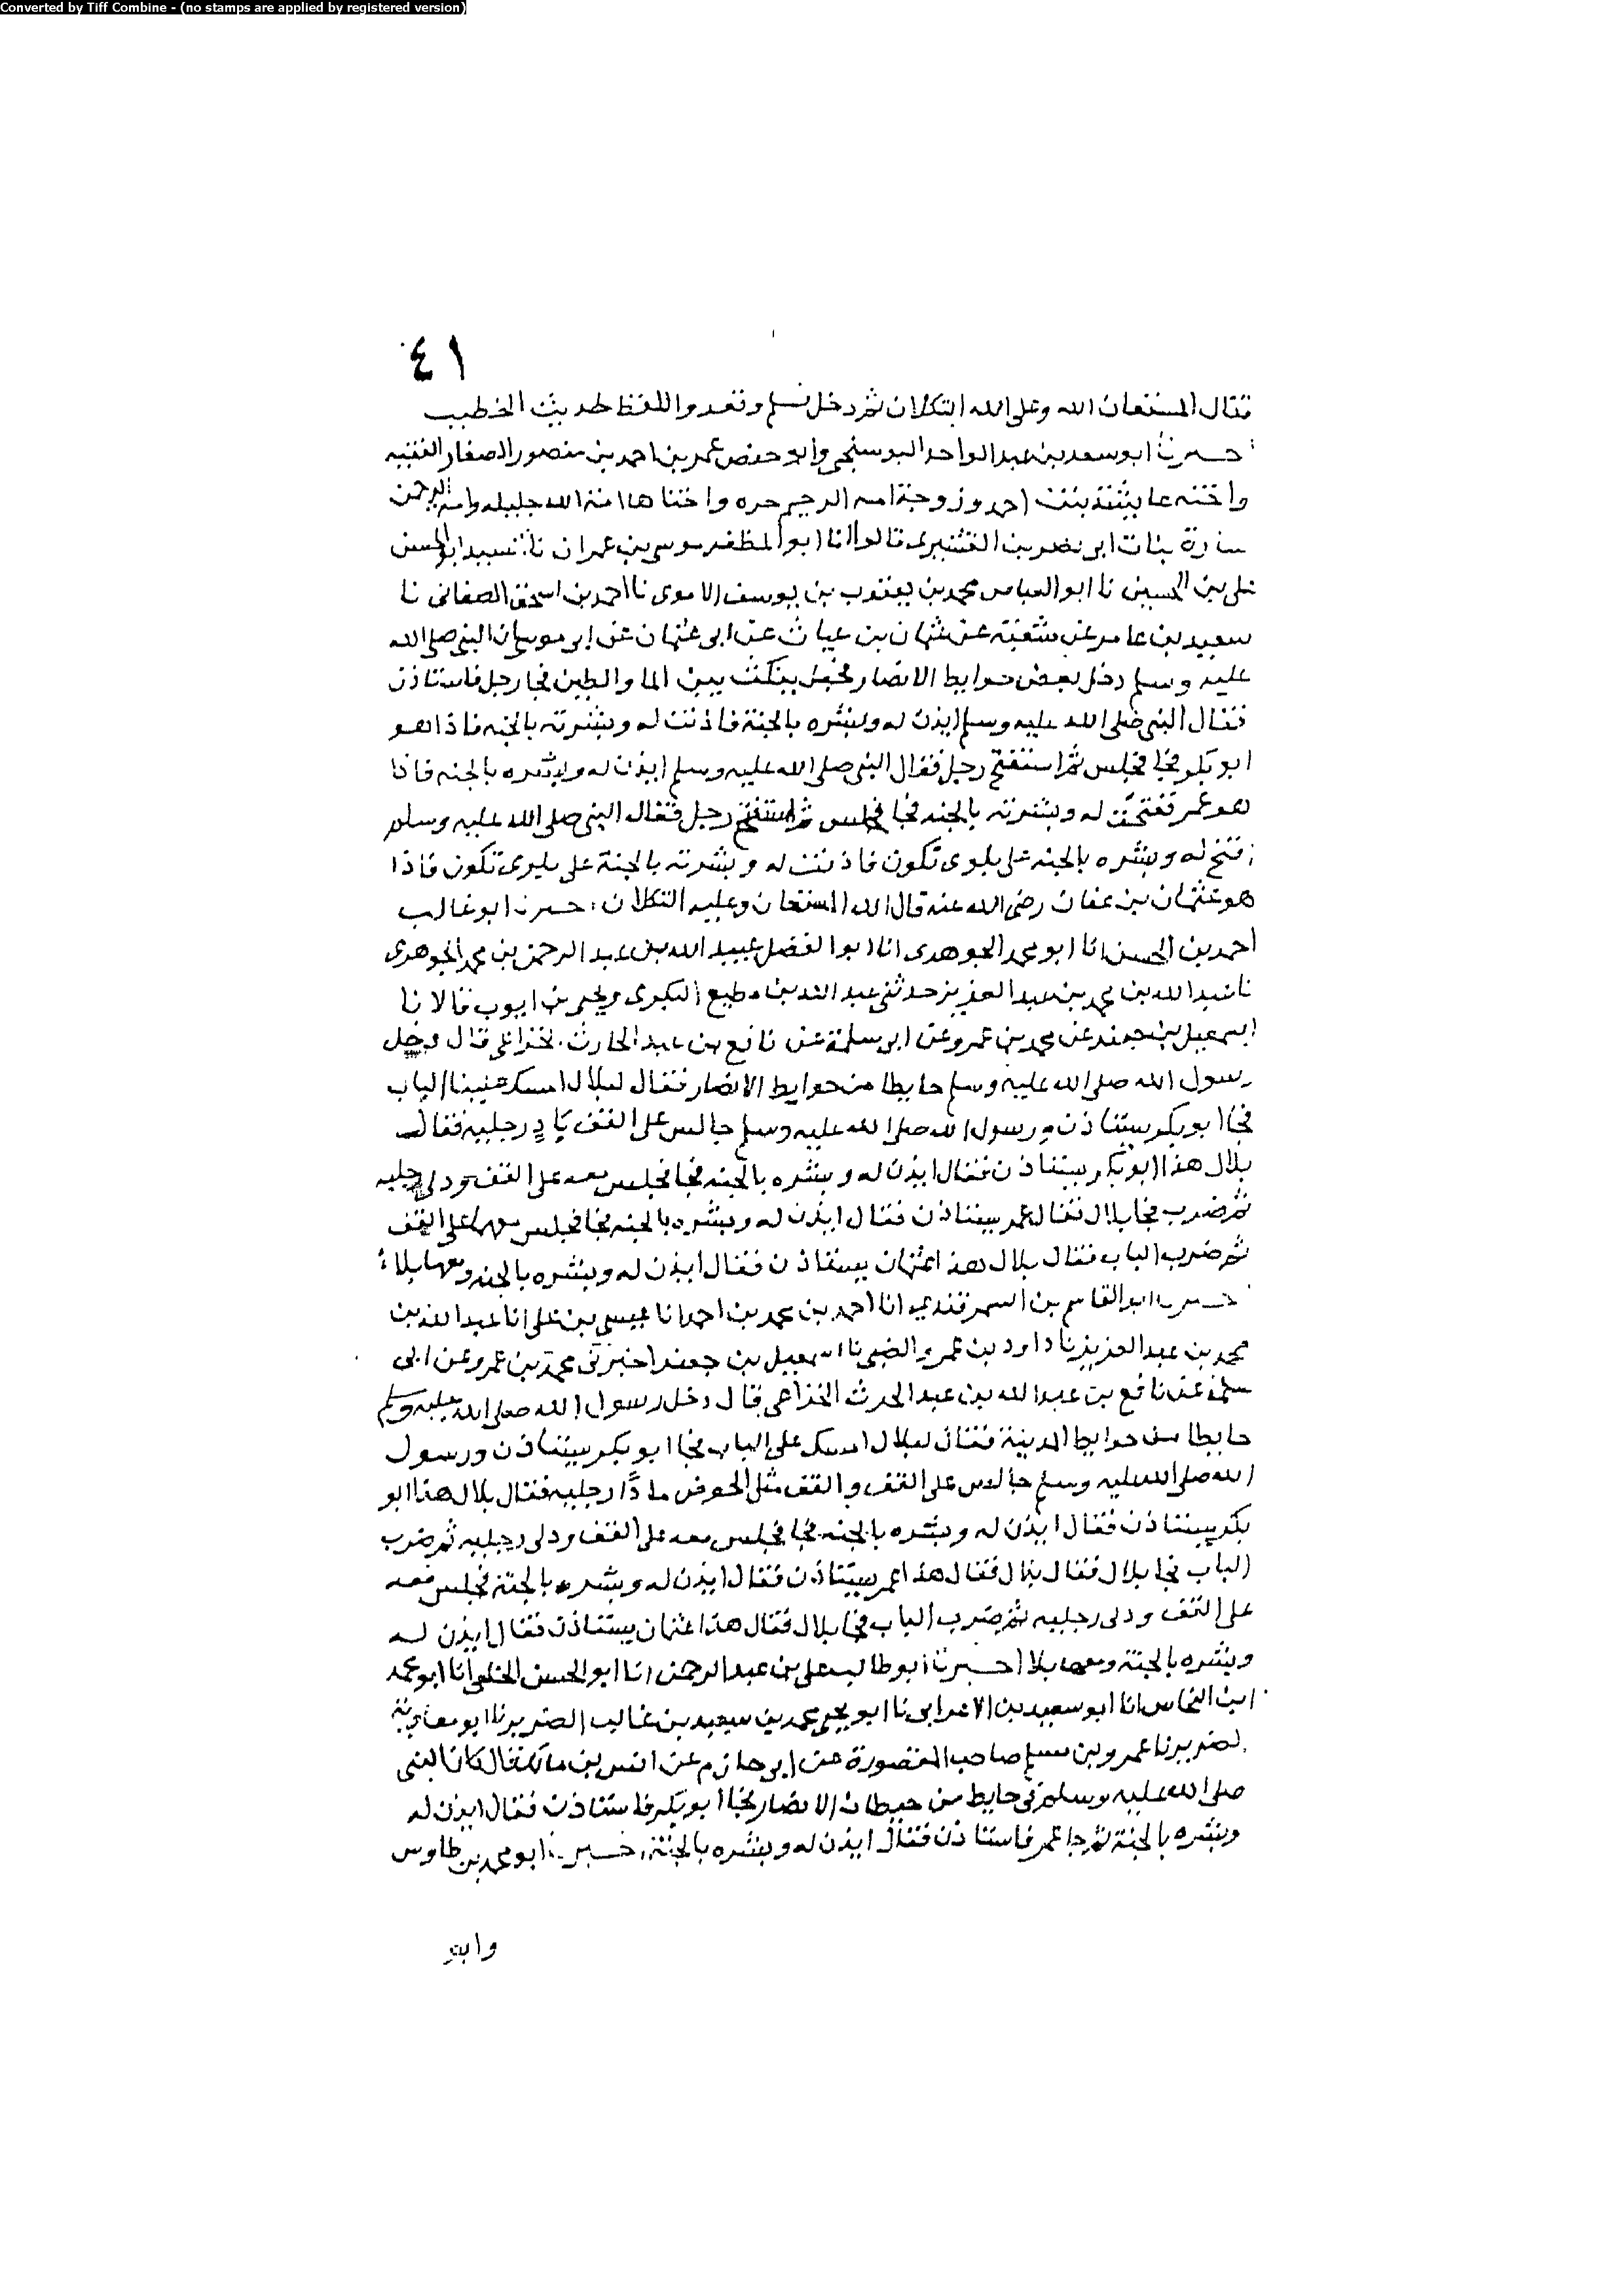 Converted by Tiff Combine - (no stamps are applied by registered version)
٤١
فقال المستعان الله وعلى الله التكلان ثم دخل فسلم وقعد واللفظ لحديث الخطيب
اخبرنا ابو سعد بن عبد الواحد البوسنجي وابو حفص عمر بن احمد بن منصور الصفار الفقيه
واخته عايشة بنت احمد وزوجة امه الرحيم حره واختاها امة الله جليله وامة الرحمن
سارة بنات ابي نصر بن القشيري قالوا انا ابو المظفر موسى بن عمران نا السيد ابو الحسن
علي بن الحسين نا ابو العباس محمد بن يعقوب بن يوسف الاموي نا احمد بن اسحق الصغاني نا
سعيد بن عامر عن شعبة عن عثمان بن غياث عن ابي عثمان عن ابي موسى ان النبي صلى الله
عليه وسلم دخل بعض حوايط الانصار فجعل ينكث بين الما والطين فجا رجل فاستاذن
فقال النبي صلى الله عليه وسلم ايذن له وبشره بالجنة فاذنت له وبشرته بالجنه فاذا هو
ابو بكر فجا فجلس ثم استفتح رجل فقال النبي صلى الله عليه وسلم ايذن له وبشره بالجنه فاذا
هو عمر ففتحت له وبشرته بالجنه فجا فجلس ثم استفتح رجل فقال النبي صلى الله عليه وسلم
افتح له وبشره بالجنه على بلوى تكون فاذنت له وبشرته بالجنة على بلوى تكون فاذا
هو عثمان بن عفان رضي الله عنه قال الله المستعان وعليه التكلان اخبرنا ابو غالب
احمد بن الحسن انا ابو محمد الجوهري انا ابو الفضل عبيد الله بن عبد الرحمن بن محمد الجوهري
نا عبد الله بن محمد بن عبد العزيز حدثني عبد الله بن مطيع البكري ويحيى بن ايوب قالا نا
اسمعيل بن جعفر عن محمد بن عمرو عن ابي سلمة عن نافع بن عبد الحارث الخزاعي قال دخل
رسول الله صلى الله عليه وسلم حايطا من حوايط الانصار فقال لبلال امسك علينا الباب
فجا ابو بكر يستاذن ورسول الله صلى الله عليه وسلم جالس على القف مادٍ رجليه فقال
بلال هذا ابو بكر يستاذن فقال ايذن له وبشره بالجنه فجا فجلس معه على القف ودلى رجليه
ثم ضرب فجا بلال فقال عمر يستاذن فقال ايذن له وبشره بالجنه فجا فجلس معهما على القف
ثم ضرب الباب فقال بلال هذا عثمان يستاذن فقال ايذن له وبشره بالجنه ومعها بلاء
اخبرنا ابو القاسم بن السمرقندي انا احمد بن محمد بن احمد انا عيسى بن علي انا عبد الله بن
محمد بن عبد العزيز نا داود بن عمرو الضبي نا اسمعيل بن جعفر اخبرني محمد بن عمرو عن ابي
سلمة عن نافع بن عبد الله بن عبد الحرث الخزاعي قال دخل رسول الله صلى الله عليه وسلم
حايطا من حوايط المدينة فقال لبلال امسك على الباب فجا ابو بكر يستاذن ورسول
الله صلى الله عليه وسلم جالس على القف والقف مثل الحوض مادًّا رجليه فقال بلال هذا ابو
بكر يستاذن فقال ايذن له وبشره بالجنه فجا فجلس معه على القف ودلى رجليه ثم ضرب
الباب فجا بلال فقال بلال فقال هذا عمر يستاذن فقال ايذن له وبشره بالجنة فجلس معه
على القف ودلى رجليه ثم ضرب الباب فجا بلال فقال هذا عثمان يستاذن فقال ايذن له
وبشره بالجنة ومعها بلا اخبرنا ابو طالب علي بن عبد الرحمن انا ابو الحسن الخلعي انا ابو محمد
ابن النحاس انا ابو سعيد بن الاعرابي نا ابو يحيى محمد بن سعيد بن غالب الضرير نا ابو معاوية
الضرير نا عمرو بن مسلم صاحب المقصورة عن ابي حازم عن انس بن مالك قال كان النبي
صلى الله عليه وسلم في حايط من حيطان الانصار فجا ابو بكر فاستاذن فقال ايذن له
وبشره بالجنة ثم جا عمر فاستاذن فقال ايذن له وبشره بالجنة اخبرنا ابو محمد بن طاوس
وابو